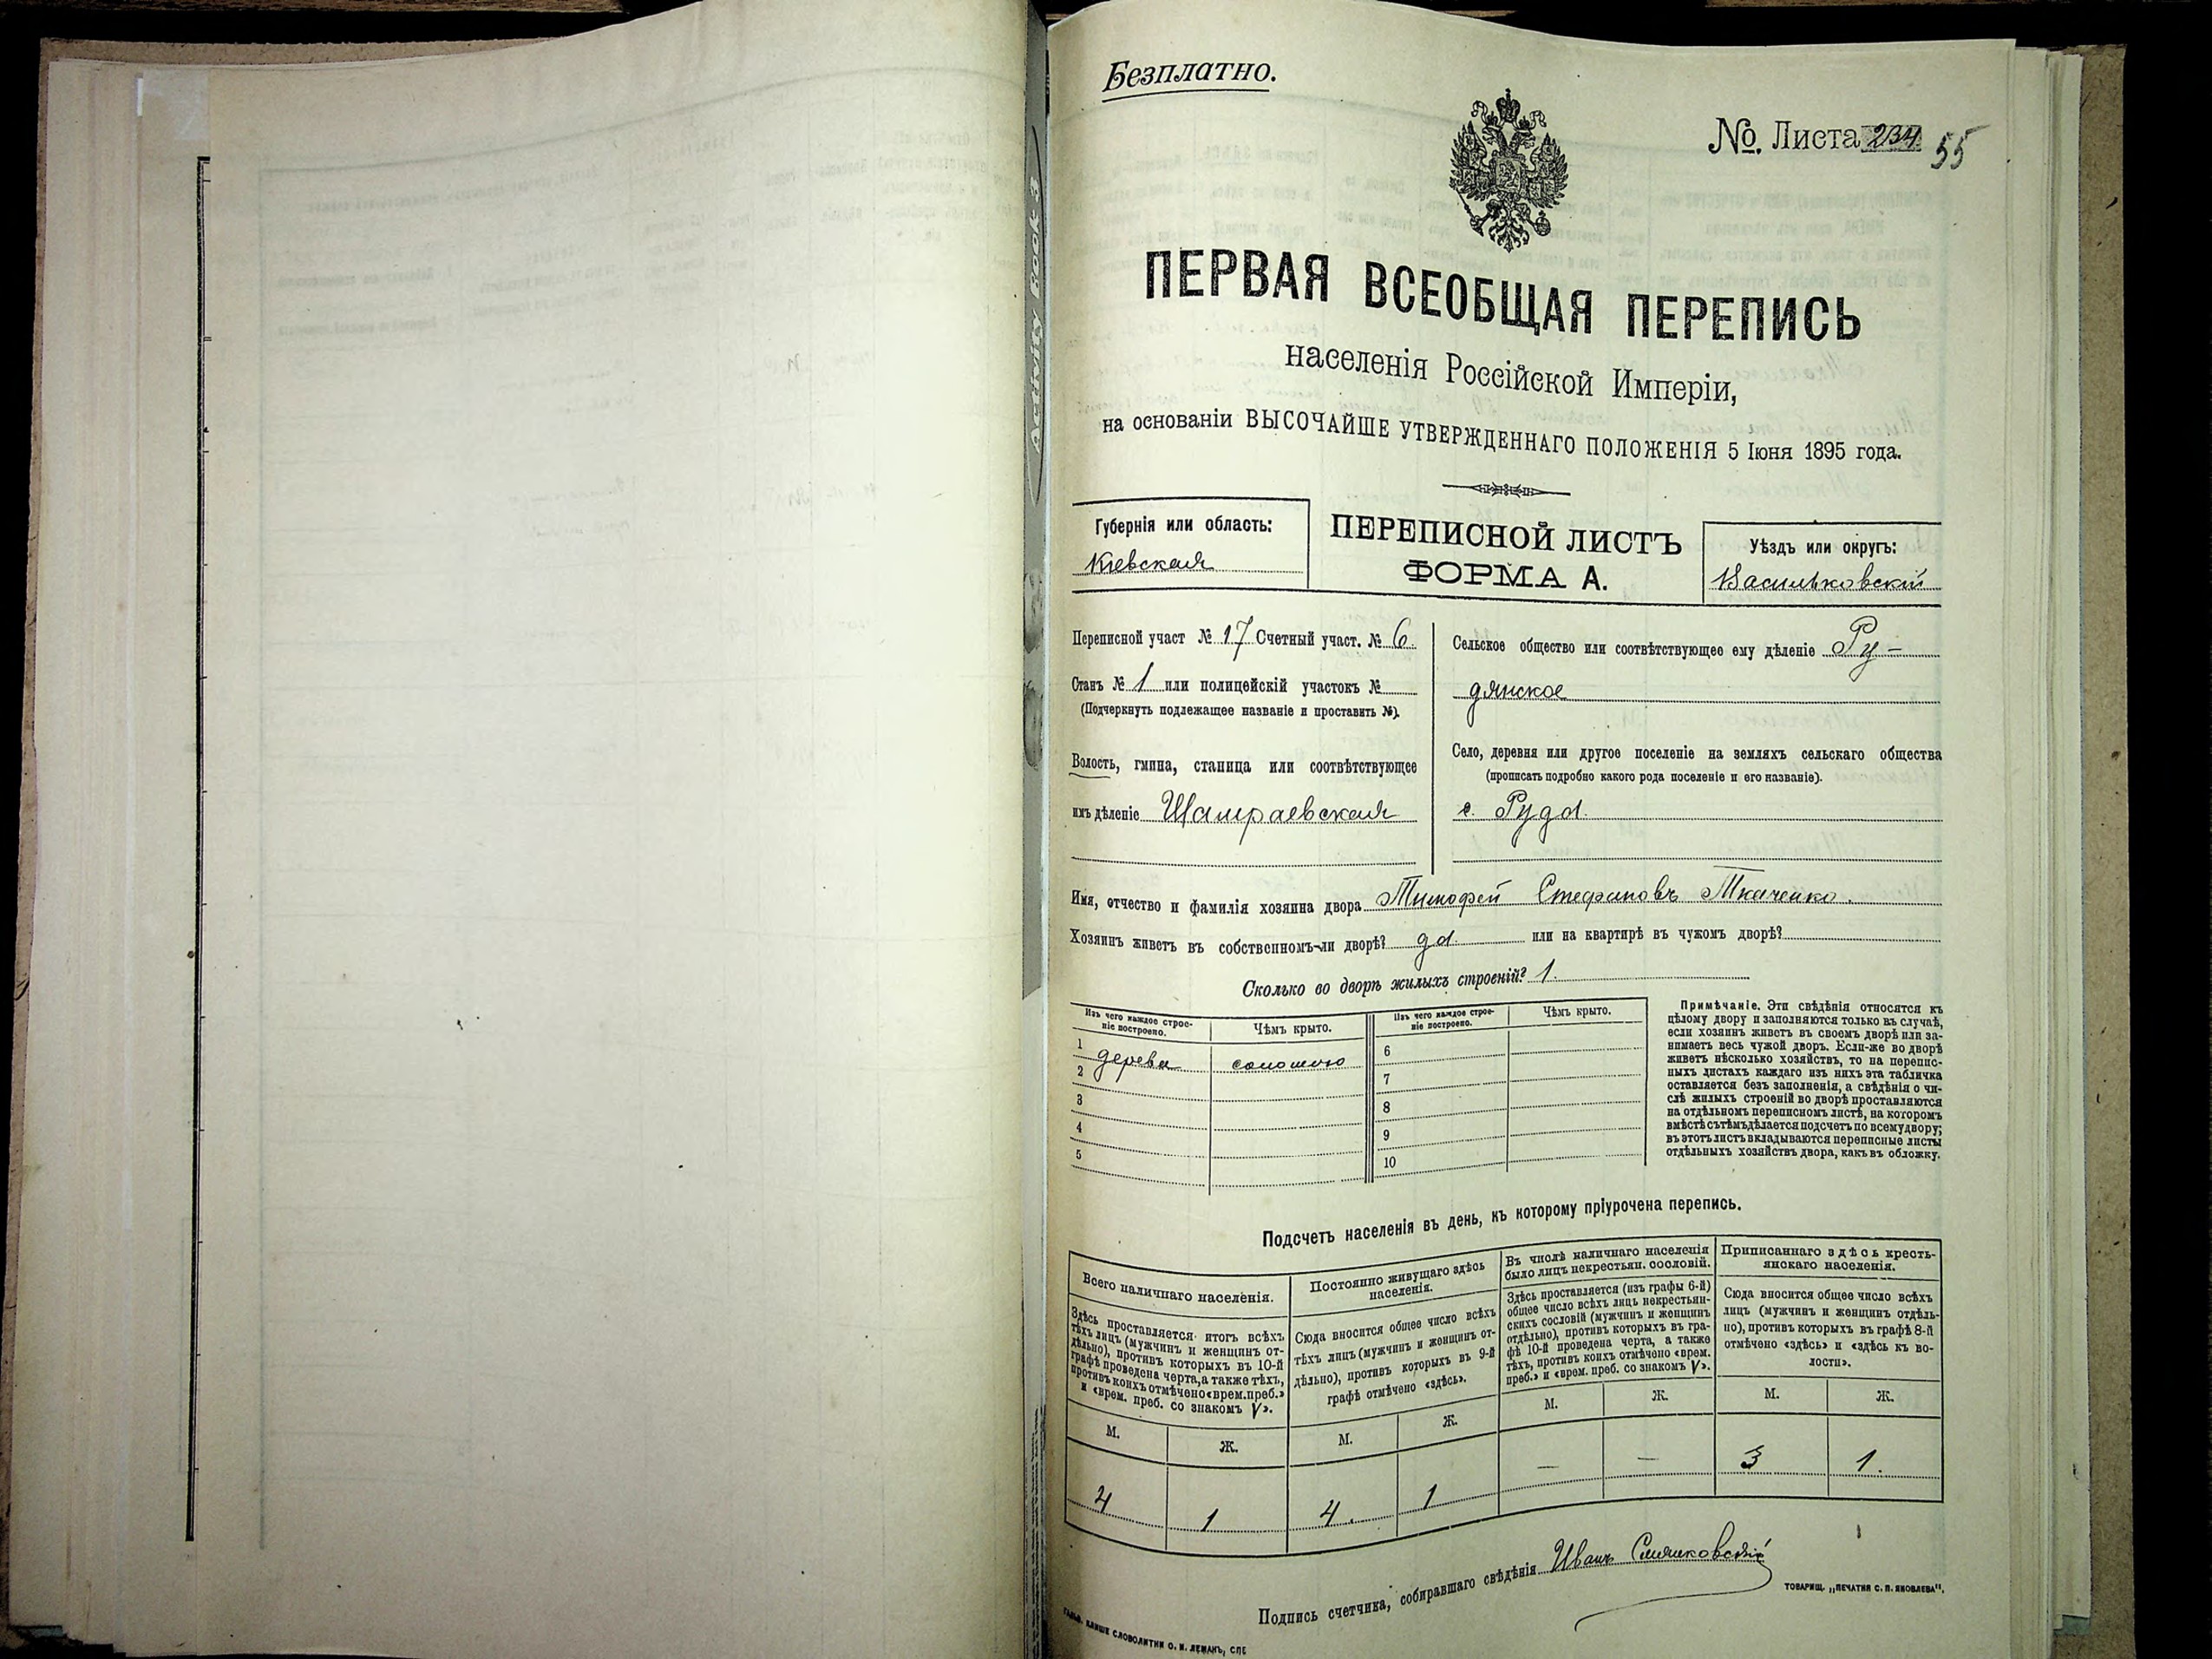 Безплатно.
№. Листа 234 55
ПЕРВАЯ ВСЕОБЩАЯ ПЕРЕПИСЬ
населенія Россійской Имперіи,
на основаніи ВЫСОЧАЙШЕ УТВЕРЖДЕННАГО ПОЛОЖЕНІЯ 5 Іюня 1895 года.
Губернія или область:
Кіевская
ПЕРЕПИСНОЙ ЛИСТЪ
ФОРМА А.
Уѣздъ или округъ:
Васильковскій
Переписной участ № 17 Счетный участ. № 6.
Станъ № 1 или полицейскій участокъ №
(Подчеркнуть подлежащее названіе и проставить №).
Волость, гмина, станица или соотвѣтствующее
имъ дѣленіе Шамраевская
Сельское общество или соотвѣтствующее ему дѣленіе Ру-
дянское
Село, деревня или другое поселеніе на земляхъ сельскаго общества
(прописать подробно какого рода поселеніе и его названіе).
с. Руда.
Имя, отчество и фамилія хозяина двора Тимофей Стефановъ Ткаченко.
Хозяинъ живетъ въ собственномъ-ли дворѣ? да. или на квартирѣ въ чужомъ дворѣ?
Сколько во дворѣ жилыхъ строеній? 1.
Изъ чего каждое строе-
ніе построено.
Чѣмъ крыто.
Изъ чего каждое строе-
ніе построено.
Чѣмъ крыто.
1 дерева соломою
2
3
4
5
6
7
8
9
10
Примѣчаніе. Эти свѣдѣнія относятся къ
цѣлому двору и заполняются только въ случаѣ,
если хозяинъ живетъ въ своемъ дворѣ или за-
нимаетъ весь чужой дворъ. Если-же во дворѣ
живетъ нѣсколько хозяйствъ, то на перепис-
ныхъ листахъ каждаго изъ нихъ эта табличка
оставляется безъ заполненія, а свѣдѣнія о чи-
слѣ жилыхъ строеній во дворѣ проставляются
на отдѣльномъ переписномъ листѣ, на которомъ
вмѣстѣ съ тѣмъ дѣлается подсчетъ по всему двору;
въ этотъ листъ вкладываются переписные листы
отдѣльныхъ хозяйствъ двора, какъ въ обложку.
Подсчетъ населенія въ день, къ которому пріурочена перепись.
Всего наличнаго населенія.
Здѣсь проставляется итогъ всѣхъ
тѣхъ лицъ (мужчинъ и женщинъ от-
дѣльно), противъ которыхъ въ 10-й
графѣ проведена черта, а также тѣхъ,
противъ коихъ отмѣчено «врем. преб.»
и «врем. преб. со знакомъ V».
М. Ж.
4 1
Постоянно живущаго здѣсь
населенія.
Сюда вносится общее число всѣхъ
тѣхъ лицъ (мужчинъ и женщинъ от-
дѣльно), противъ которыхъ въ 9-й
графѣ отмѣчено «здѣсь».
М. Ж.
4. 1
Въ числѣ наличнаго населенія
было лицъ некрестьян. сословій.
Здѣсь проставляется (изъ графы 6-й)
общее число всѣхъ лицъ некрестьян-
скихъ сословій (мужчинъ и женщинъ
отдѣльно), противъ которыхъ въ гра-
фѣ 10-й проведена черта, а также
тѣхъ, противъ коихъ отмѣчено «врем.
преб.» и «врем. преб. со знакомъ V».
М. Ж.
— —
Приписаннаго здѣсь кресть-
янскаго населенія.
Сюда вносится общее число всѣхъ
лицъ (мужчинъ и женщинъ отдѣль-
но), противъ которыхъ въ графѣ 8-й
отмѣчено «здѣсь» и «здѣсь къ во-
лости».
М. Ж.
3 1.
Подпись счетчика, собиравшаго свѣдѣнія Иванъ
ТОВАРИЩ. „ПЕЧАТНЯ С. П. ЯКОВЛЕВА".
КЛИШЕ СЛОВОЛИТНИ О. И. ЛЕМАНЪ, СПБ
Activity Book 3